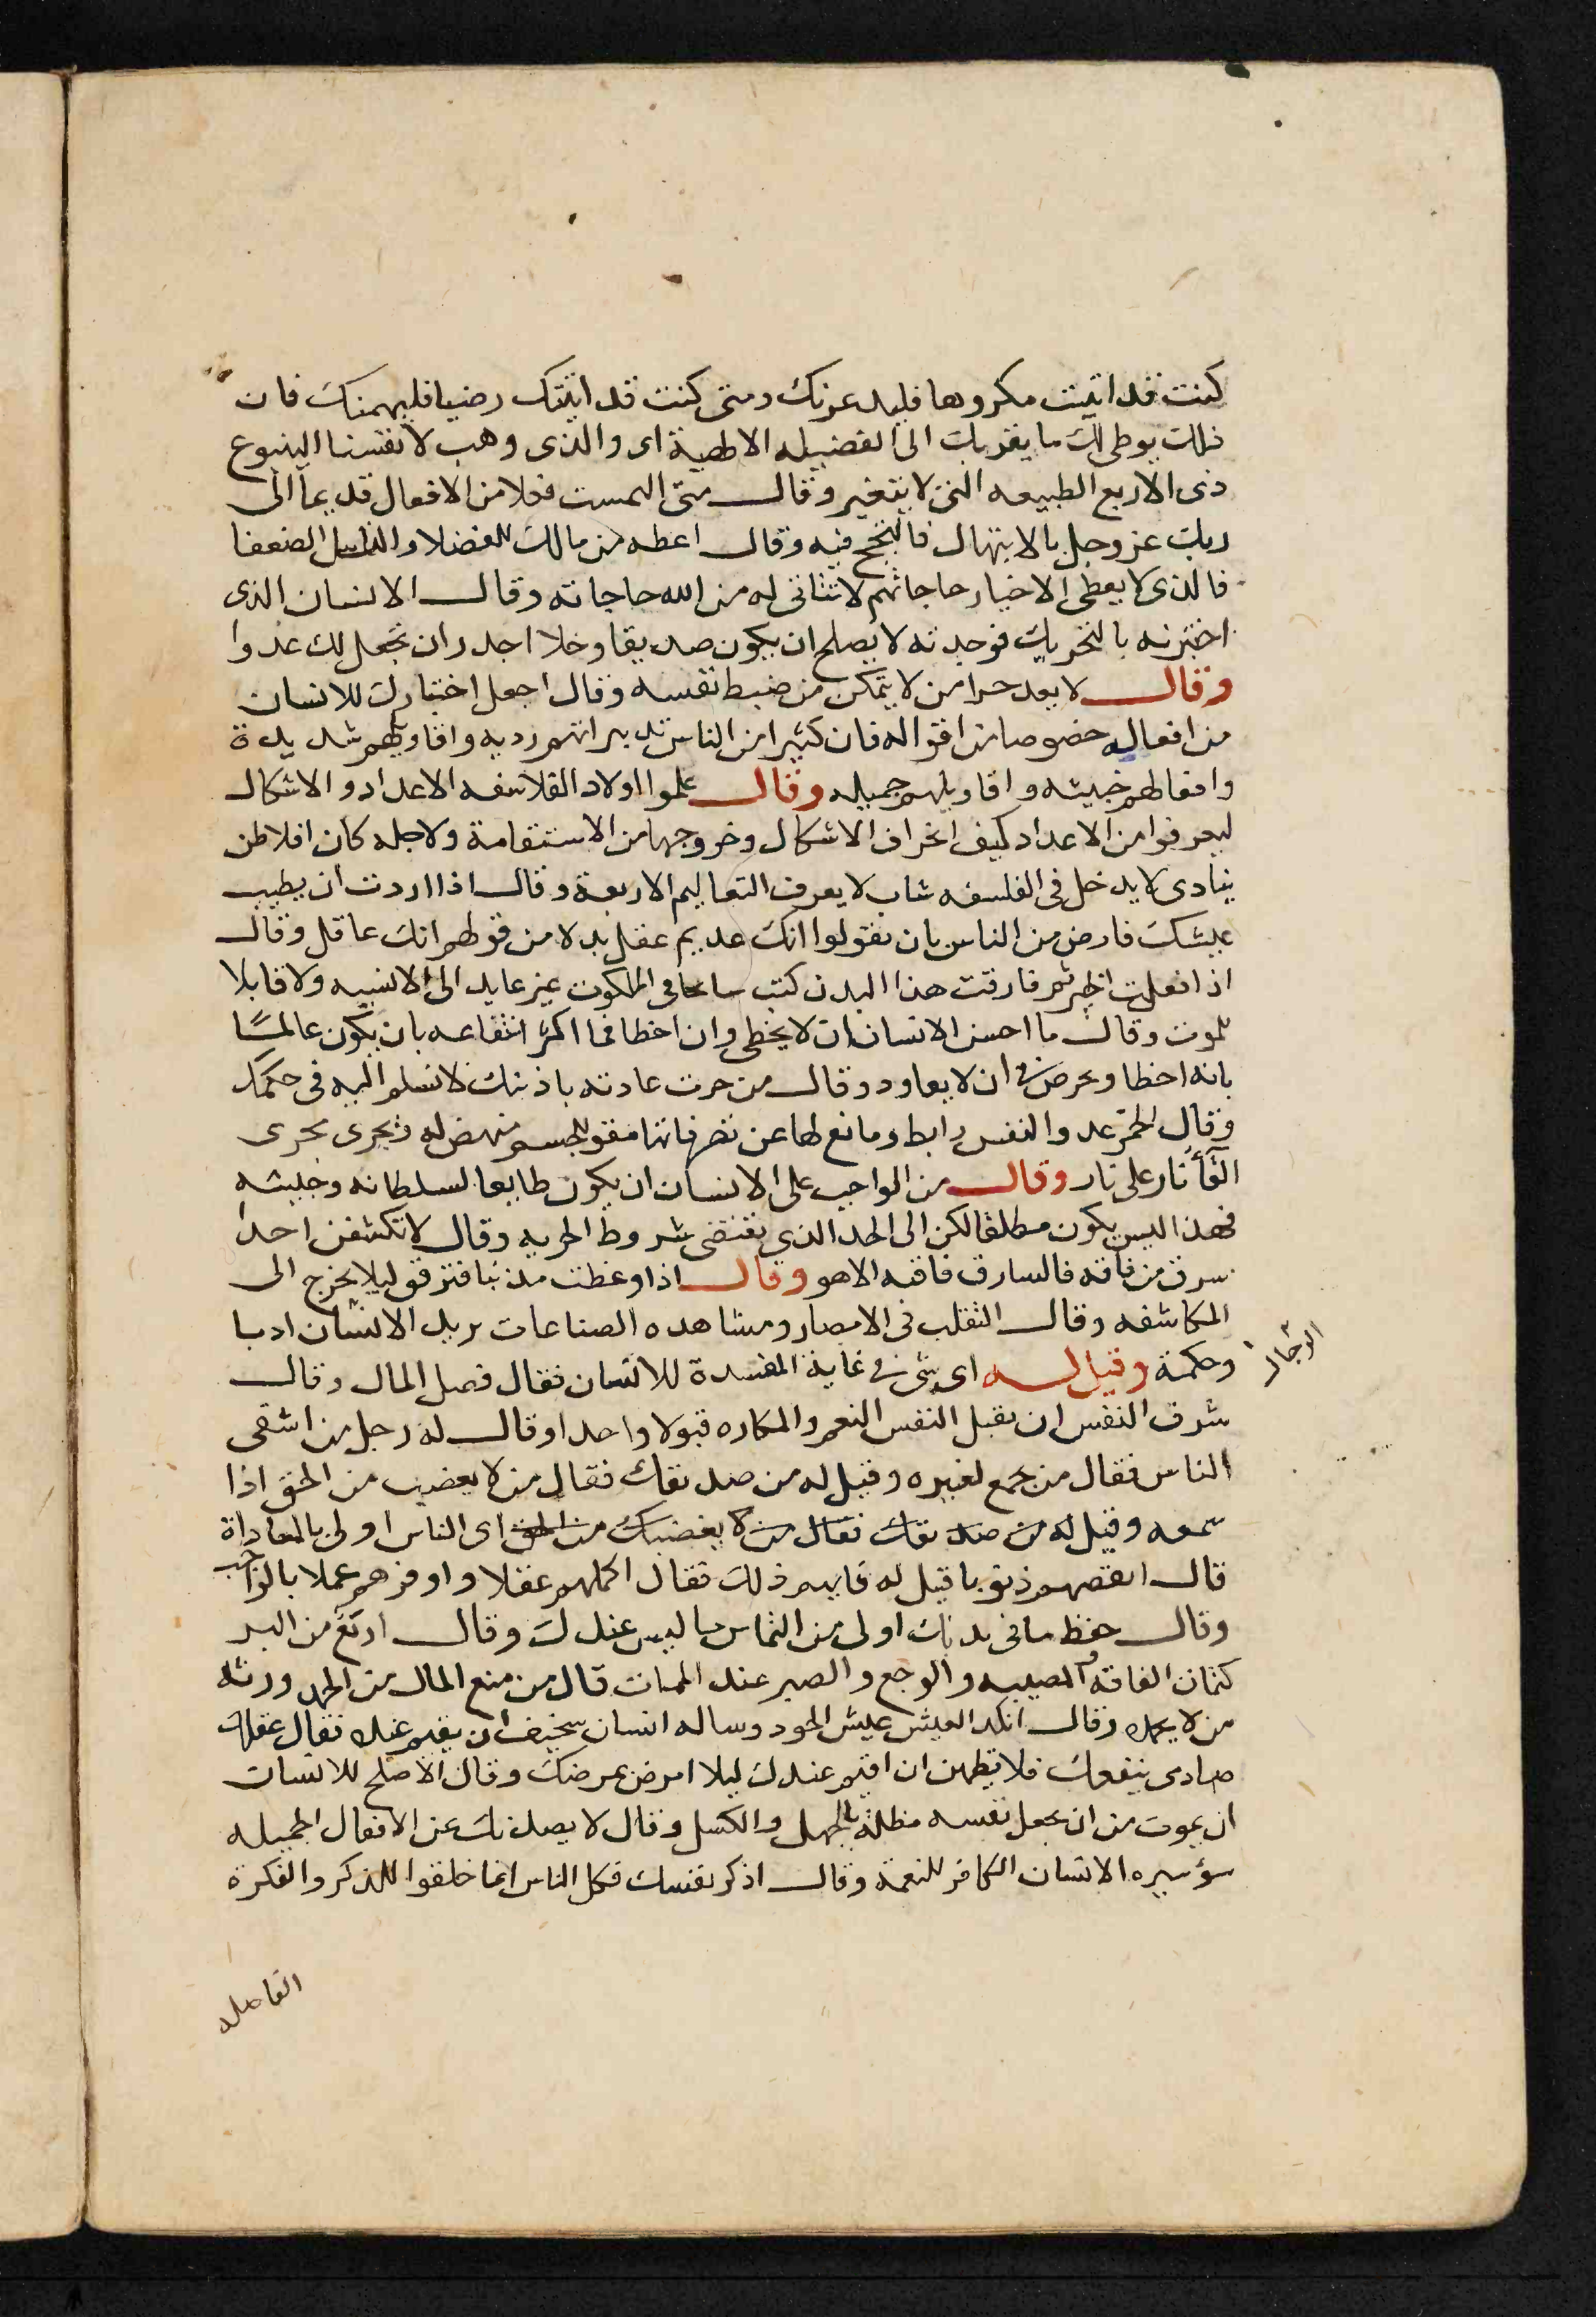 كنت قد اتيت مكروها فليدعرنك ومتى كنت قد اتيتك رضيا فليهمنك فان
ذلك يوطى لك ما يقربك الى الفضيله الالهية اى والذى وهب لانفسنا الينبوع
ذى الاربع الطبيعه التى لا يتغير وقال متى التمست فعلا من الافعال قد يما الى
ربك عز وجل بالابتهال فالنجح فيه وقال اعطه من مالك للفضلا والناس الضعفا
فالذى لا يعطى الاخيار حاجاتهم لا تتاتى له من الله حاجاته وقال الانسان الذى
اختبرته بالتجربة فوجدته لا يصلح ان يكون صديقا وخلا اجدر ان تجعل لك عدوا
وقال لا يعد حرا من لا يتمكن من ضبط نفسه وقال اجعل اختبارك للانسان
من افعاله خصوصا من اقواله فان كثيرا من الناس تدبيراتهم رديه واقاويلهم شديدة
وافعالهم خبيثه واقاويلهم جميله وقال علموا اولاد الفلاسفه الاعداد والاشكال
ليعرفوا من الاعداد كيف انحراف الاشكال وخروجها من الاستقامة ولاجله كان افلاطن
ينادى لا يدخل فى الفلسفه شاب لا يعرف التعاليم الاربعة وقال اذا اردت ان يطيب
عيشك فارض من الناس بان يقولوا انك عديم عقل بدلا من قولهم انك عاقل وقال
اذا فعلت الخير ثم فارقت هذا البدن كنت سابحا فى الملكوت غير عايد الى الانسيه ولا قابلا
للموت وقال ما احسن الانسان ان لا يخطى وان اخطا فما اكثر انتفاعه بان يكون عالما
بانه اخطا ويحرص فى ان لا يعاود وقال من جرت عادته باذيتك لا تسلم اليه فى حكمك
وقال الخمر عدو النفس رابط ومانع لها عن تصرفاتها مقو للجسم منهض له فيجرى مجرى
القآء نار على نار وقال من الواجب على الانسان ان يكون طايعا لسلطانه وخليته
فهذا ليس يكون مطلقا لكن الى الحد الذى تقتضى شروط الحريه وقال لا تكشفن احدا
سرق من فاقه فالسارق فاقته لا هو وقال اذا وعظت مذنبا فترفق ليلا يخرج الى
المكاشفه وقال التقلب فى الامصار ومشاهده الصناعات يزيد الانسان ادبا
وحكمة وقيل له اى شى فى غاية المفسدة للانسان فقال فضل المال وقال
شرف النفس ان يقبل النفس النعم والمكاره قبولا واحدا وقال له رجل من اشقى
الناس فقال من جمع لغيره وقيل له من صديقك فقال من لا يغضب من الحق اذا
سمعه وقيل له من صديقك فقال من لا يغضبك من الحق اى الناس اولى بالمعاداة
قال انقصهم ذنوبا قيل له فايهم ذلك فقال اكملهم عقلا واوفرهم عملا بالواجب
وقال حفظ ما فى يديك اولى من التماس ما ليس عندك وقال اربع من البر
كتمان الفاقة والمصيبه والوجع والصبر عند الممات قال من منع المال من الحمد ورثه
من لا يحمده وقال انكد العيش عيش الحسود وساله انسان سخيف ان يقيم عنده فقال عقلك
صادى ينفعك فلا تطمعن ان اقيم عندك ليلا امرض بمرضك وقال الاصلح للانسان
ان يموت من ان يجعل نفسه مظلمة بالجهل والكسل وقال لا يصدنك عن الافعال الجميله
سؤ سيره الانسان الكافر للنعمة وقال اذكر نفسك فكل الناس انما خلقوا للذكر والفكرة
الفاضله